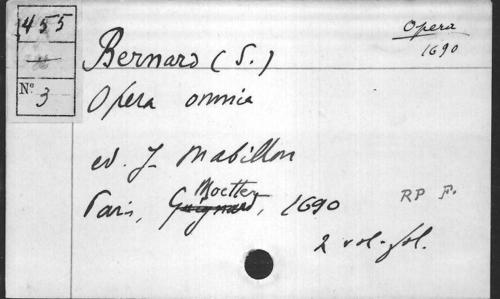 455
Nº 3
Opera
1690
Bernard (S.)
Opera omnia
ed. J. Mabillon
Paris, Guignard, Moette, 1690
RP F.
2 vol. fol.